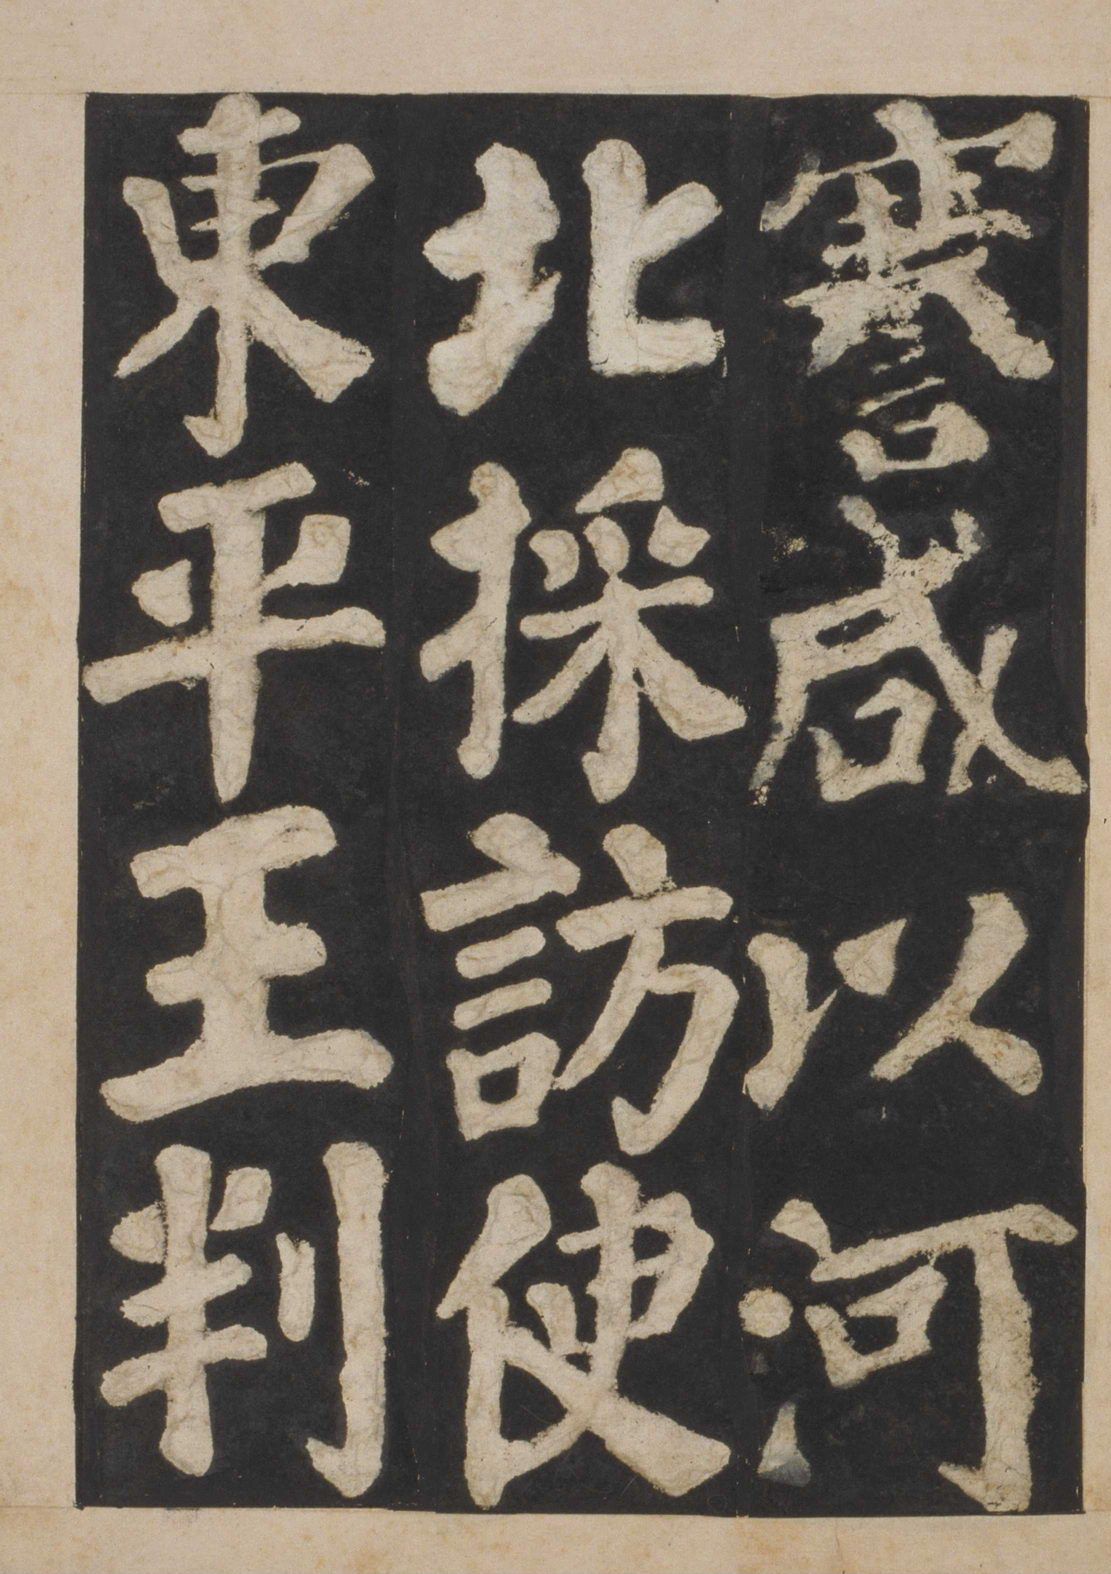 謇咸以河
北採訪使
東平王判